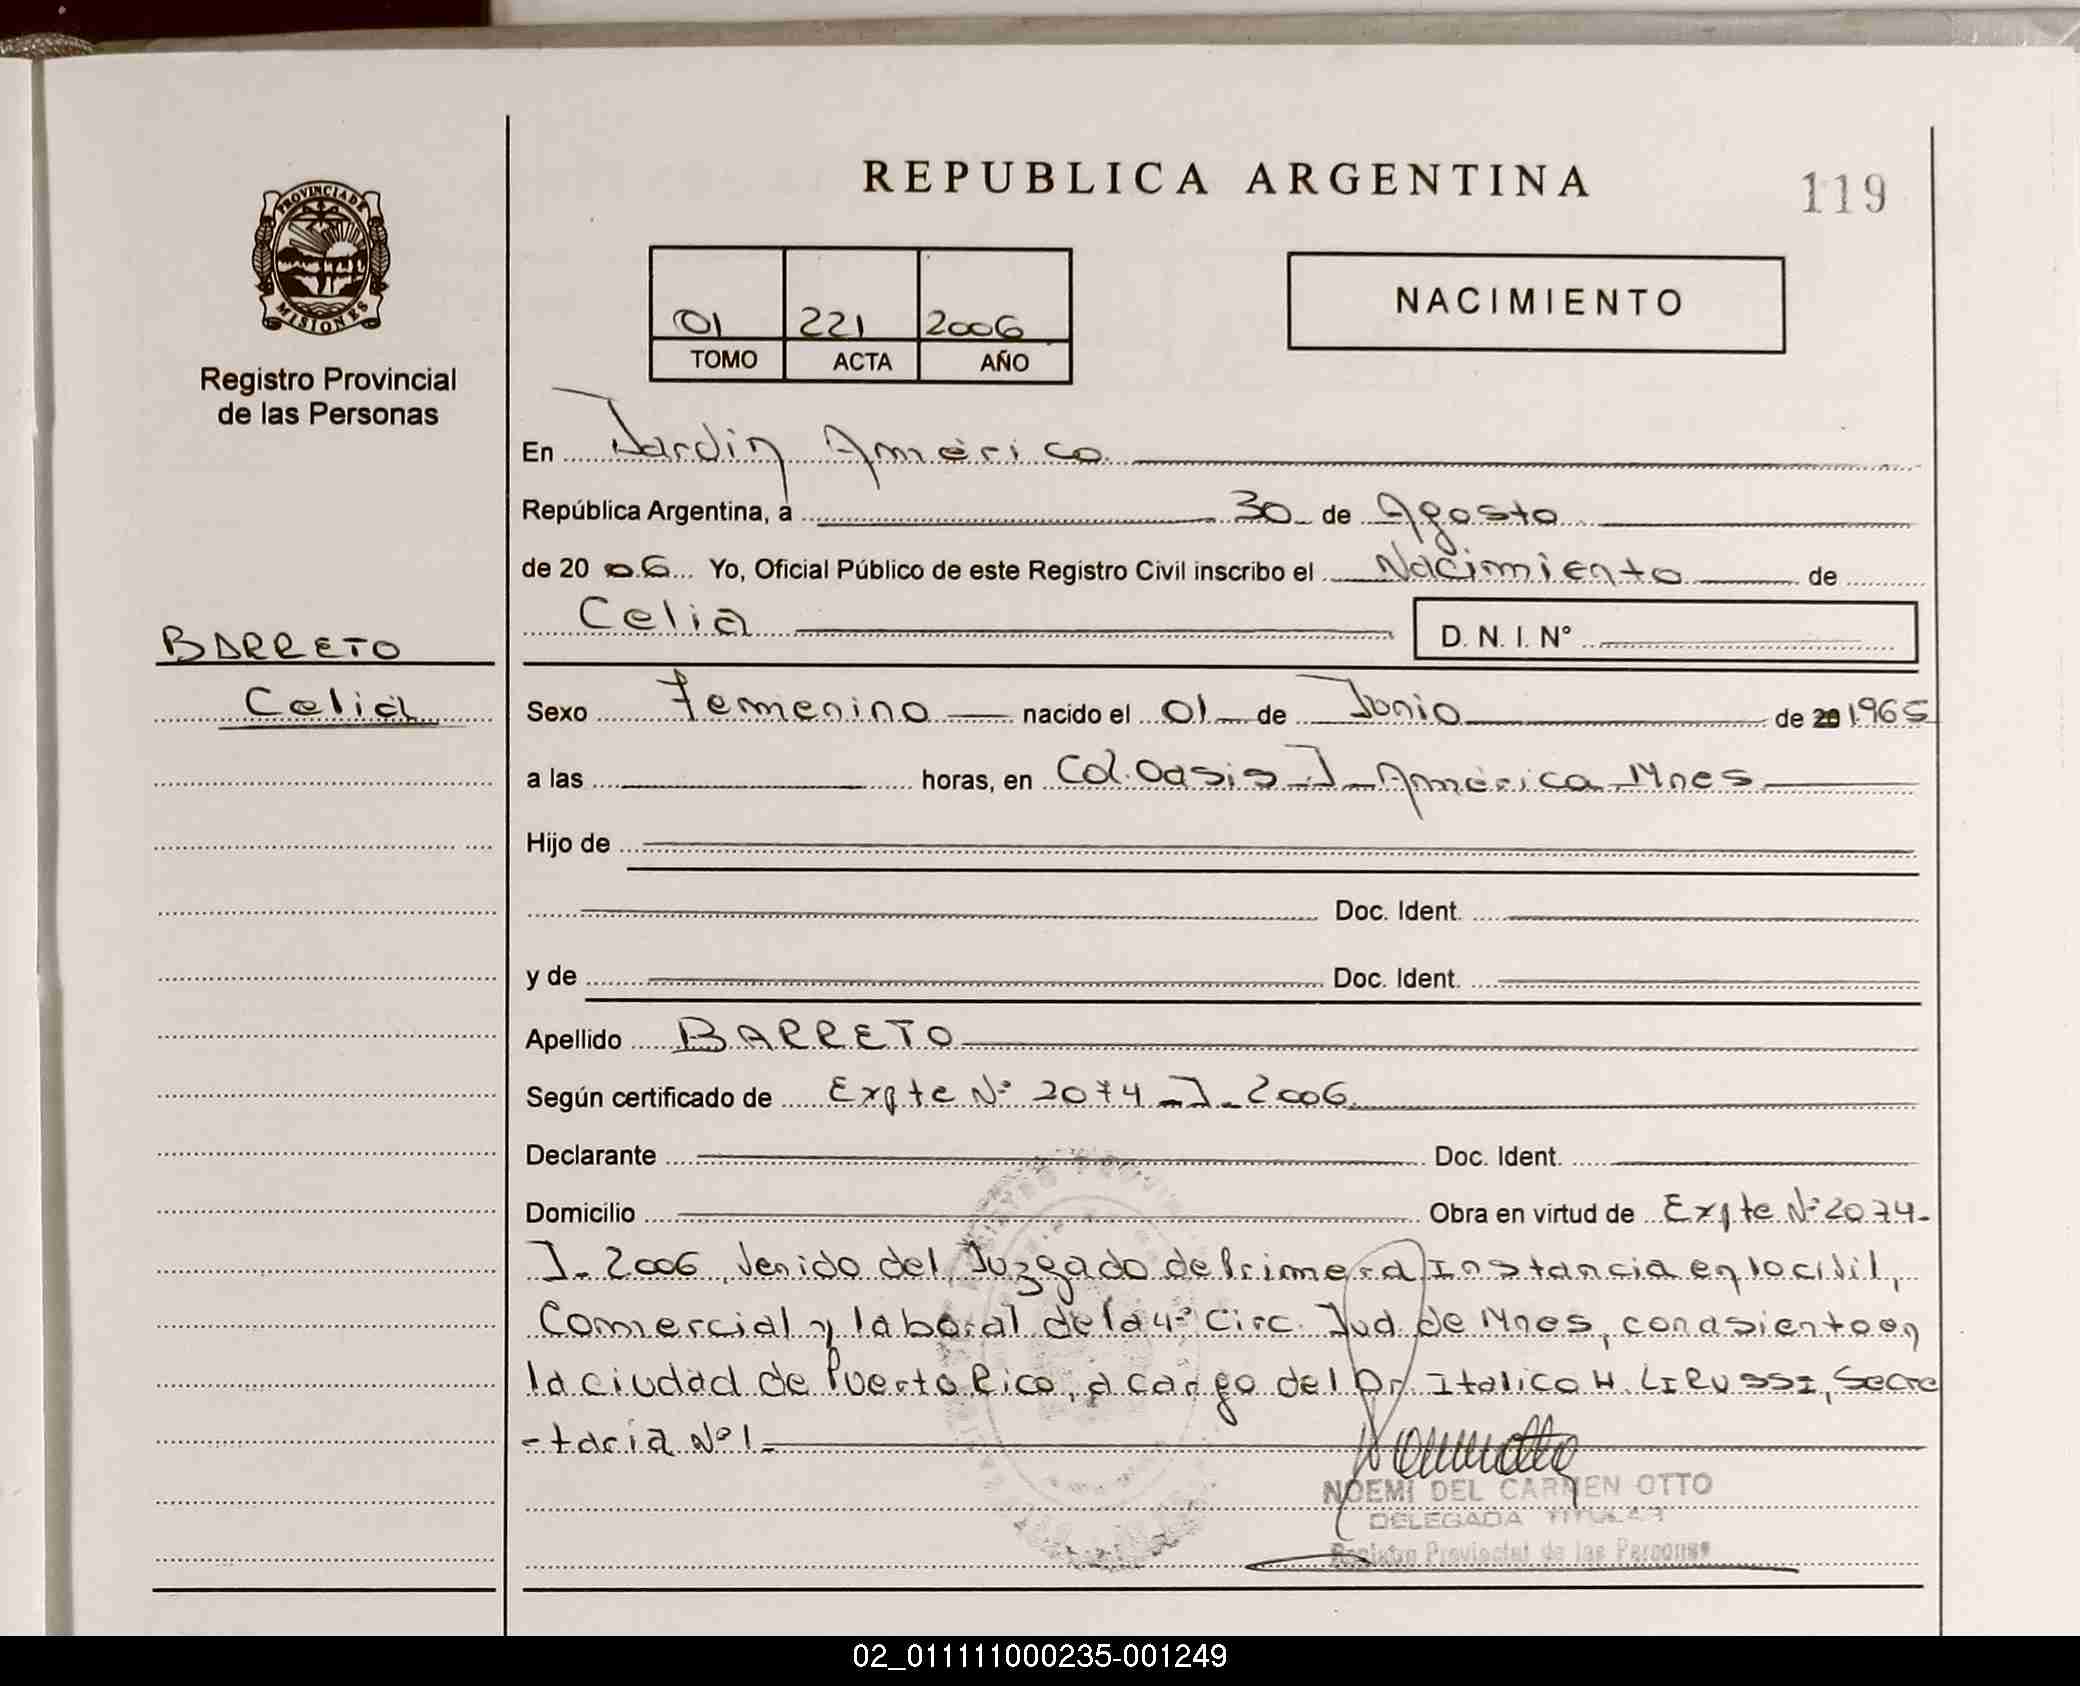 REPUBLICA ARGENTINA
119
PROVINCIA DE
MISIONES
Registro Provincial
de las Personas
01 221 2006
TOMO ACTA AÑO
NACIMIENTO
En Jardin América
República Argentina, a 30 de Agosto
de 20 06 Yo, Oficial Público de este Registro Civil inscribo el Nacimiento de
Celia D. N. I. N°
BARRETO
Celia
Sexo femenino nacido el 01 de Junio de 20 1965
a las horas, en Col. Oasis J- América Mnes
Hijo de
Doc. Ident.
y de Doc. Ident.
Apellido BARRETO
Según certificado de Expte Nº 2074 - J - 2006
Declarante Doc. Ident.
Domicilio Obra en virtud de Expte Nº 2074-
J- 2006 venido del Juzgado de Primera Instancia en lo civil,
Comercial y laboral de la 4º Circ. Jud de Mnes, con asiento en
la ciudad de Puerto Rico, a cargo del Dr. Italico H. LIRUSSI, Secre
-taría Nº 1-
NOEMI DEL CARMEN OTTO
DELEGADA TITULAR
Registro Provincial de las Personas
02_011111000235-001249